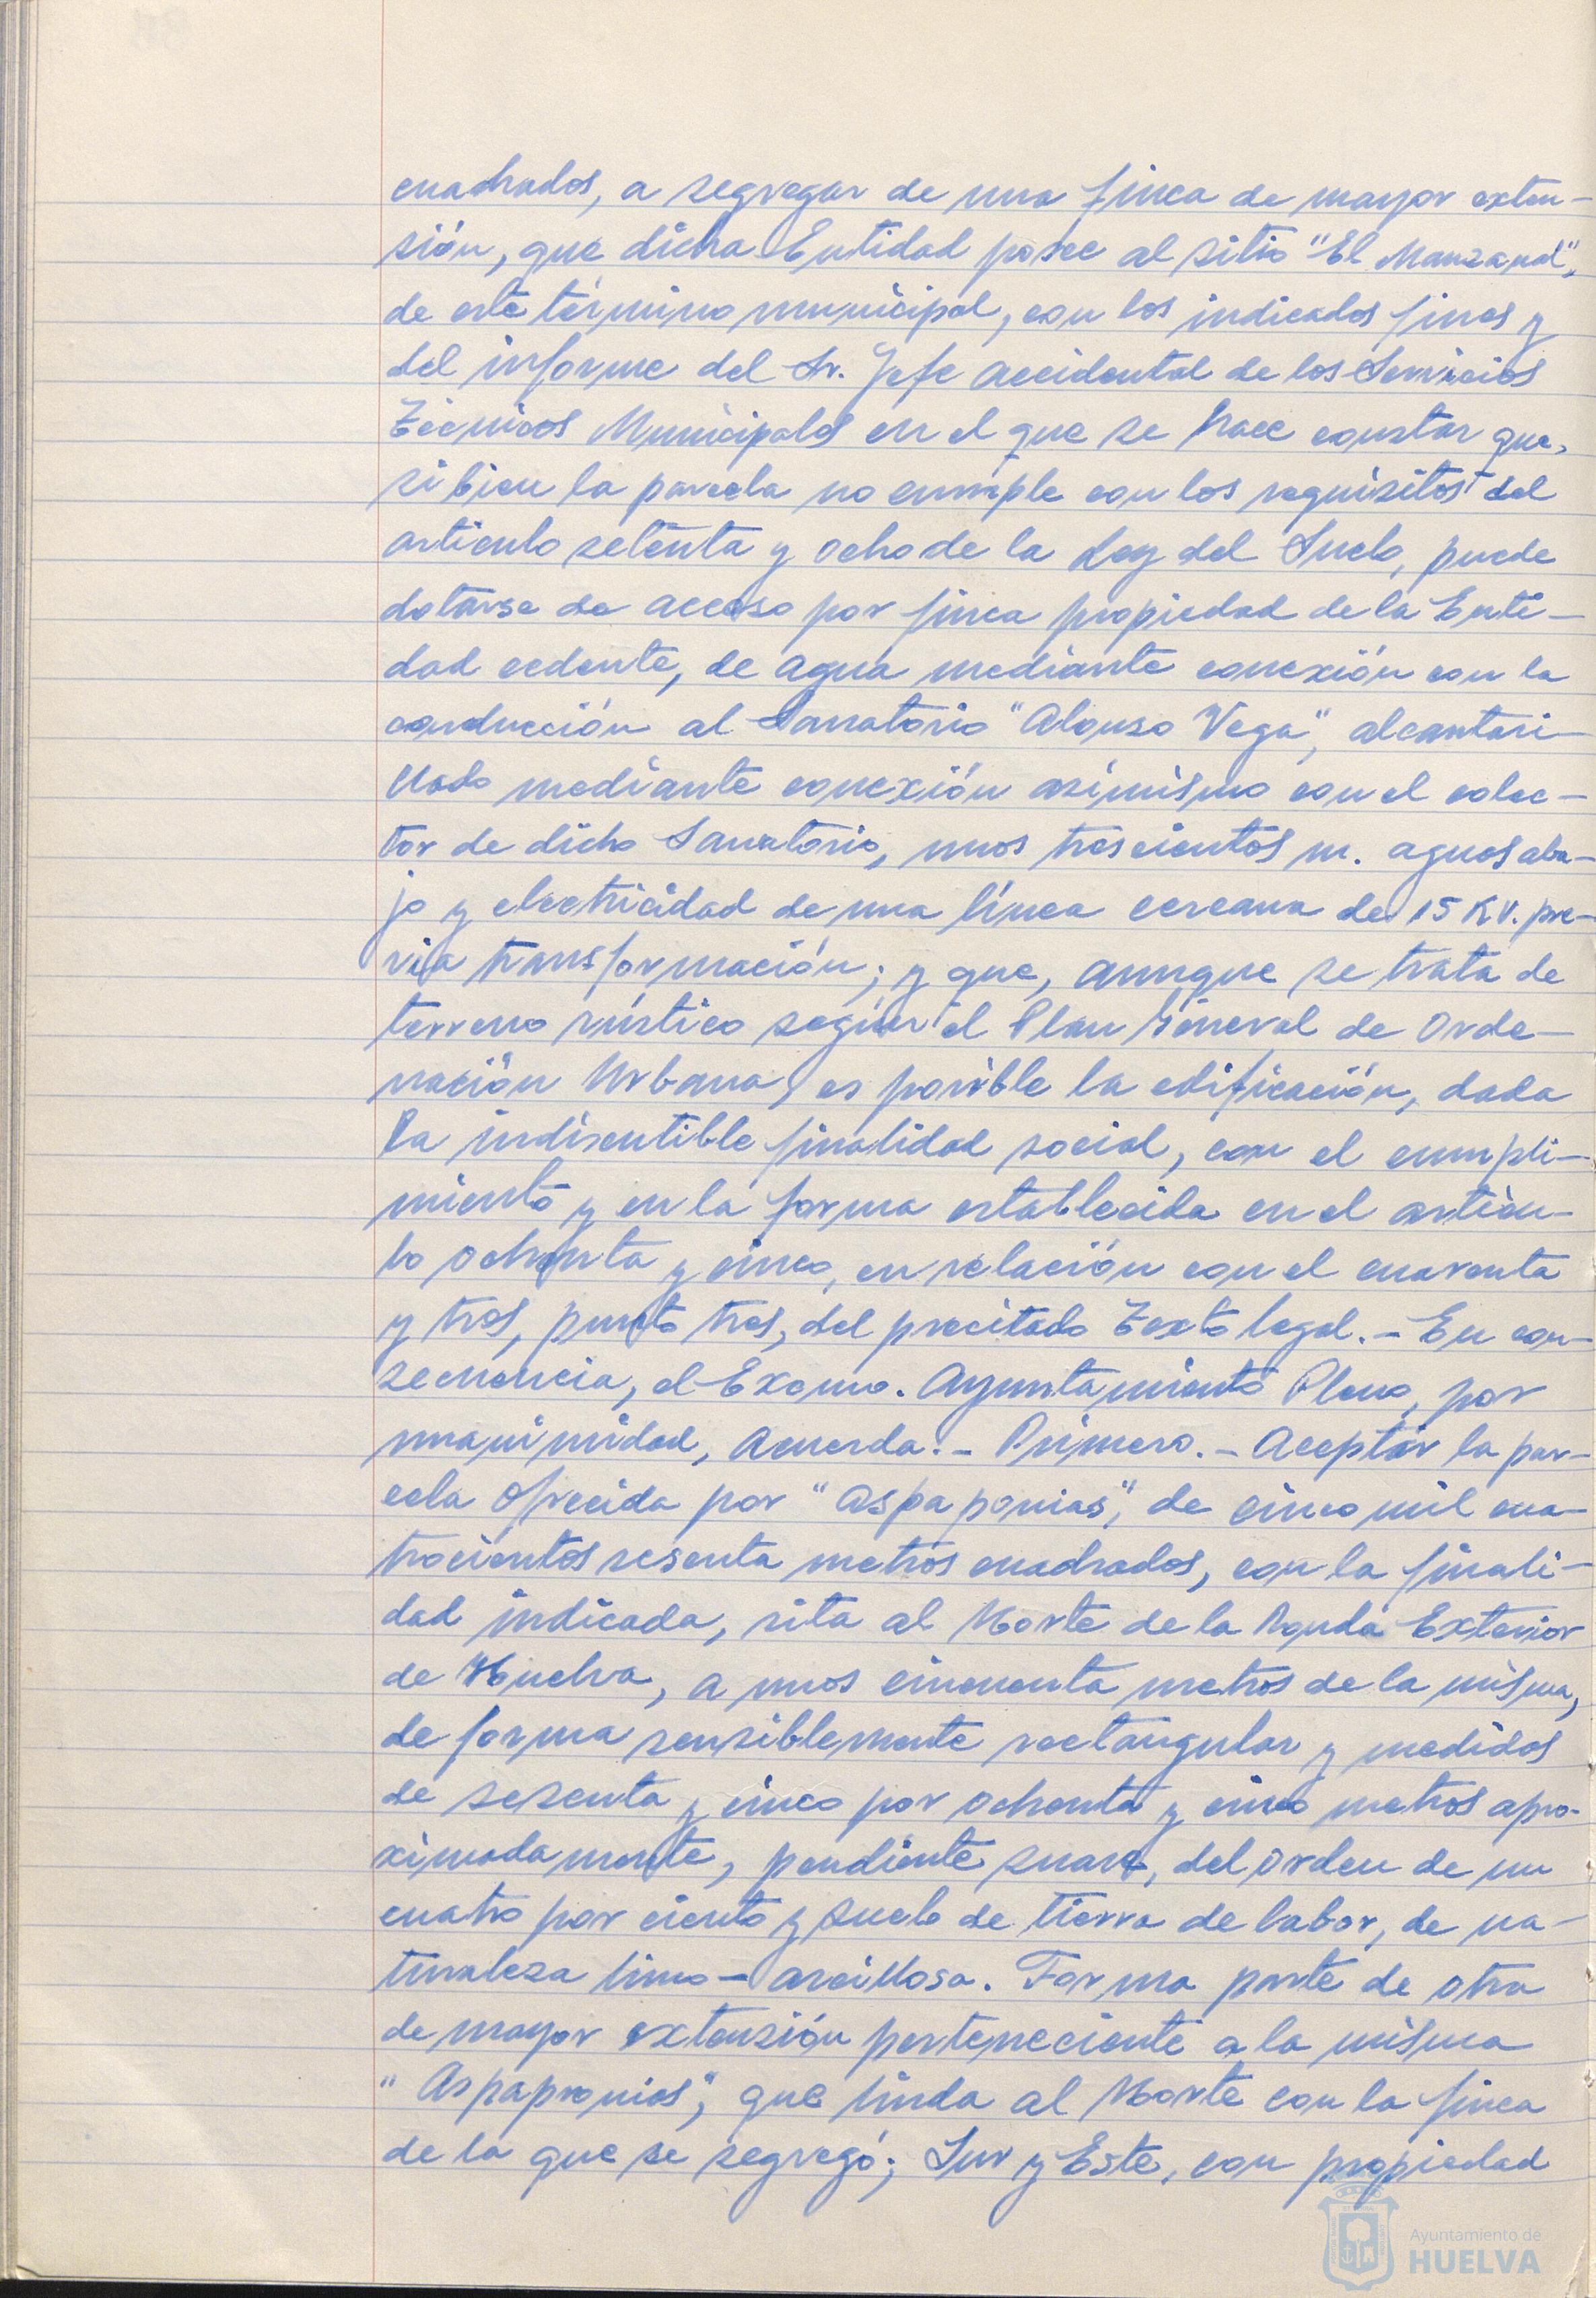 cuadrados, a segregar de una finca de mayor exten-
sión, que dicha Entidad posee al sitio "El Manzanal",
de este término municipal, con los indicados fines y
del informe del Sr. Jefe accidental de los Servicios
Técnicos Municipales en el que se hace constar que,
si bien la parcela no cumple con los requisitos del
artículo setenta y ocho de la Ley del Suelo, puede
dotarse de acceso por finca propiedad de la Enti-
dad cedente, de agua mediante conexión con la
conducción al Sanatorio "Alonso Vega", alcantari-
llado mediante conexión asimismo con el colec-
tor de dicho Sanatorio, unos trescientos m. aguas aba-
jo y electricidad de una línea cercana de 15 KV. pre-
via transformación; y que, aunque se trata de
terreno rústico según el Plan General de Orde-
nación Urbana, es posible la edificación, dada
la indiscutible finalidad social, con el cumpli-
miento y en la forma establecida en el artícu-
lo ochenta y cinco, en relación con el cuarenta
y tres, punto tres, del precitado Texto legal.- En con-
secuencia, el Excmo. Ayuntamiento Pleno, por
unanimidad, Acuerda:- Primero.- Aceptar la par-
cela ofrecida por "Aspapronias", de cinco mil cua-
trocientos sesenta metros cuadrados, con la finali-
dad indicada, sita al Norte de la Ronda Exterior
de Huelva, a unos cincuenta metros de la misma,
de forma sensiblemente rectangular y medidas
de sesenta y cinco por ochenta y cinco metros apro-
ximadamente, pendiente suave, del orden de un
cuatro por ciento y suelo de tierra de labor, de na-
turaleza limo-arcillosa. Forma parte de otra
de mayor extensión perteneciente a la misma
"Aspapronias", que linda al Norte con la finca
de la que se segregó; Sur y Este, con propiedad
Ayuntamiento de
HUELVA